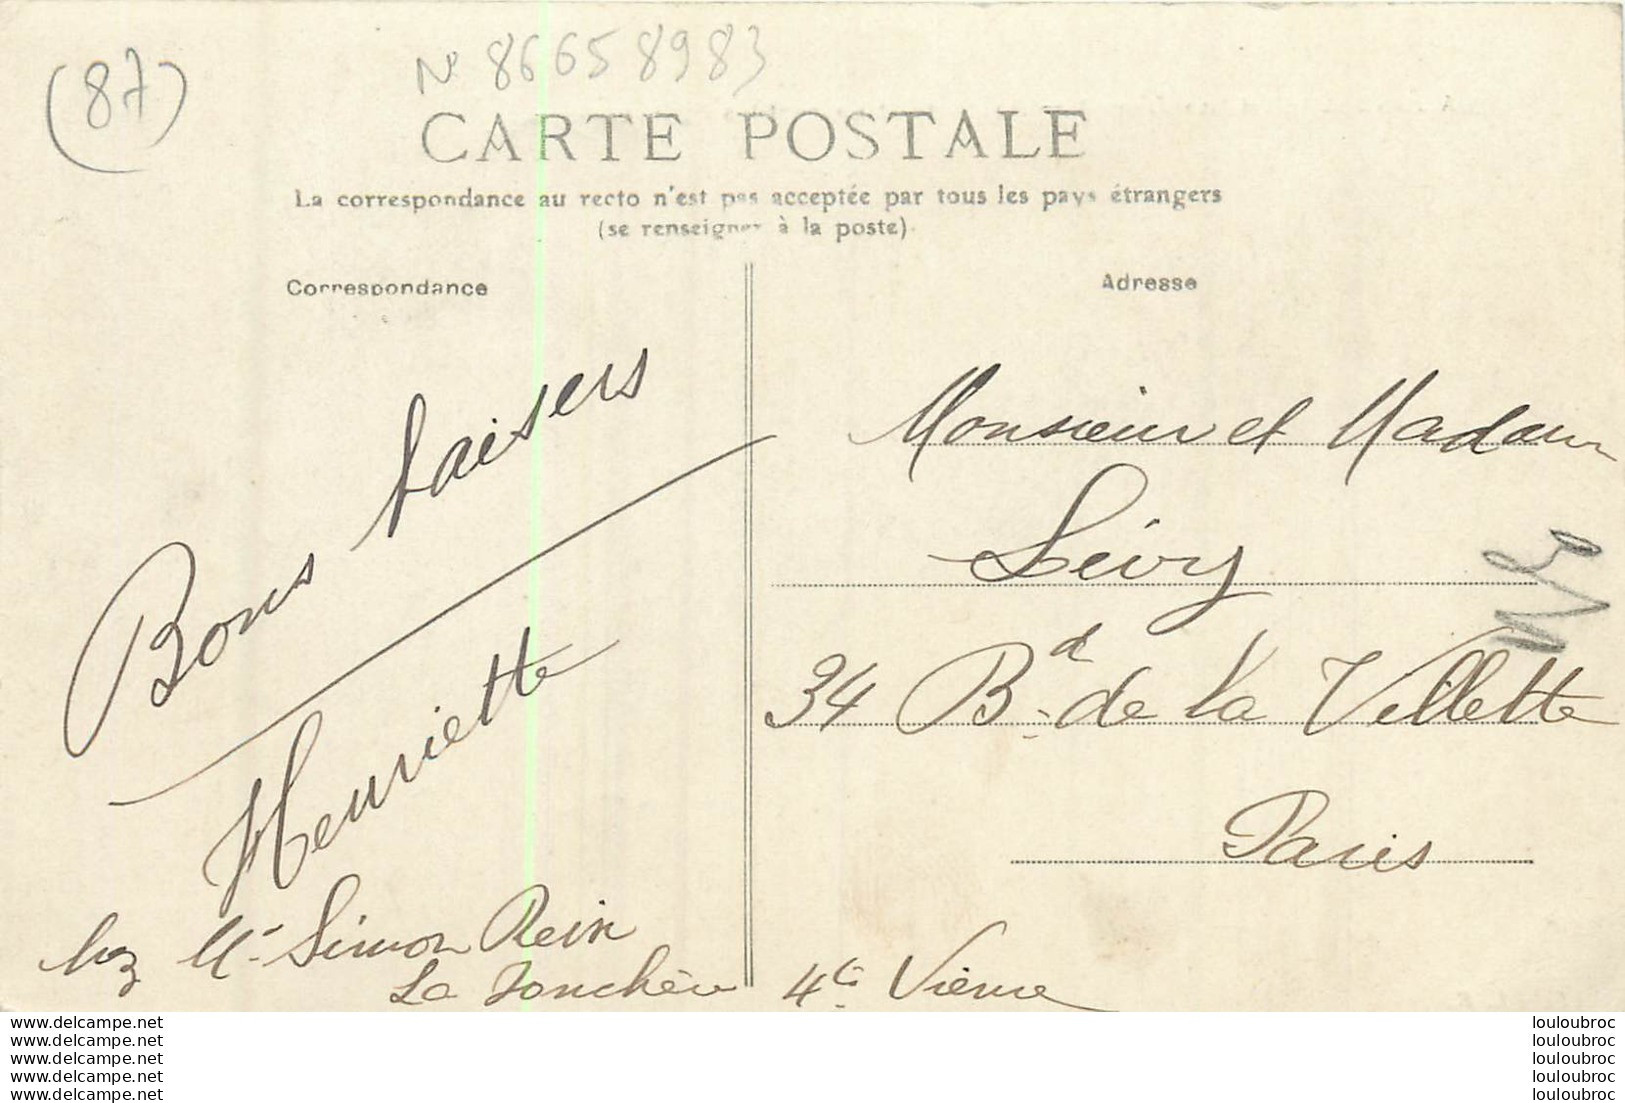 (87)
N° 86658983
CARTE POSTALE
La correspondance au recto n'est pas acceptée par tous les pays étrangers
(se renseigner à la poste)
Correspondance
Adresse
Bons baisers
Henriette
chez Mr Simon Rein
La Jonchère Hte Vienne
Monsieur et Madame
Lévy
34 Bd de la Villette
Paris
www.delcampe.net
www.delcampe.net
www.delcampe.net
www.delcampe.net
www.delcampe.net
louloubroc
louloubroc
louloubroc
louloubroc
louloubroc